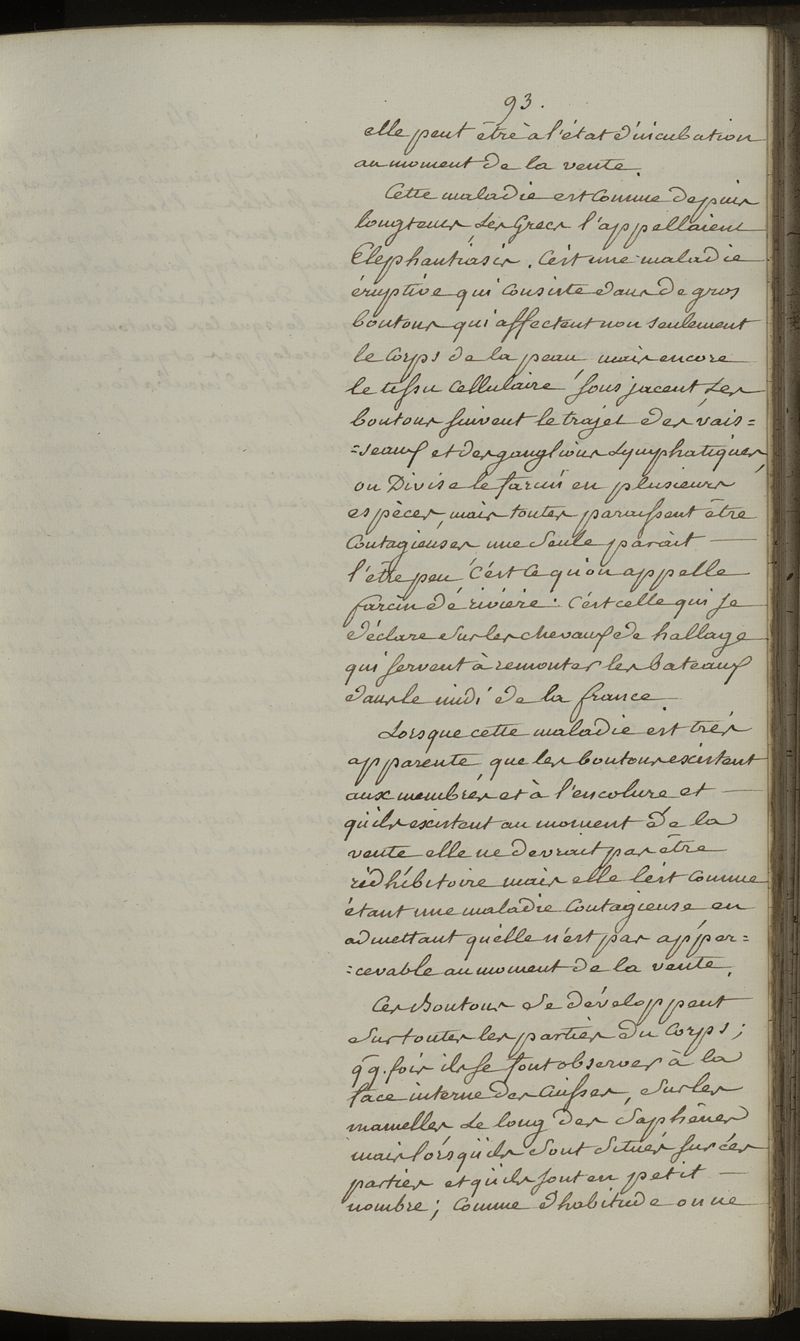 93.
elle peut être à l'état d'incubation
au moment de la vente.
Cette maladie est Connue depuis
longtems, Les Grecs l'appellaient
Elephantiasis. C'est une maladie
éruptive qui Consiste dans de gros
boutons qui affectent non seulement
le Corps de la peau mais encore
le tissu Cellulaire sous jacent Les
boutons suivent le trajet des vais=
=seaux et des ganglions Lymphatiques,
on Divise le farcin en plusieurs
espèces, mais toutes paraissent être
Contagieuses une seule parait —
l'être peu C'est Ce qu'on appelle
farcin de riviere. C'est celle qui se
déclare sur les chevaux de hallage
qui servent à remonter les bateaux
dans le midi de la france.
Lorsque cette maladie est très
apparente, que les boutons existent
aux membres et à l'encolure et —
qu'ils existent au moment de la
vente elle ne devrait pas être
rédhibitoire mais elle l'est Comme
étant une maladie Contagieuse en
admettant qu'elle n'est pas apper=
=cevable au moment de la vente.
Ces Boutons se développent
sur toutes les parties du Corps;
qq. fois ils se font observer à la
face interne des Cuisses, sur les
mamelles Le long des Saphènes
mais lorsqu'ils sont situés sur ces
parties et qu'ils sont en petit —
nombre; Comme d'habitude on ne